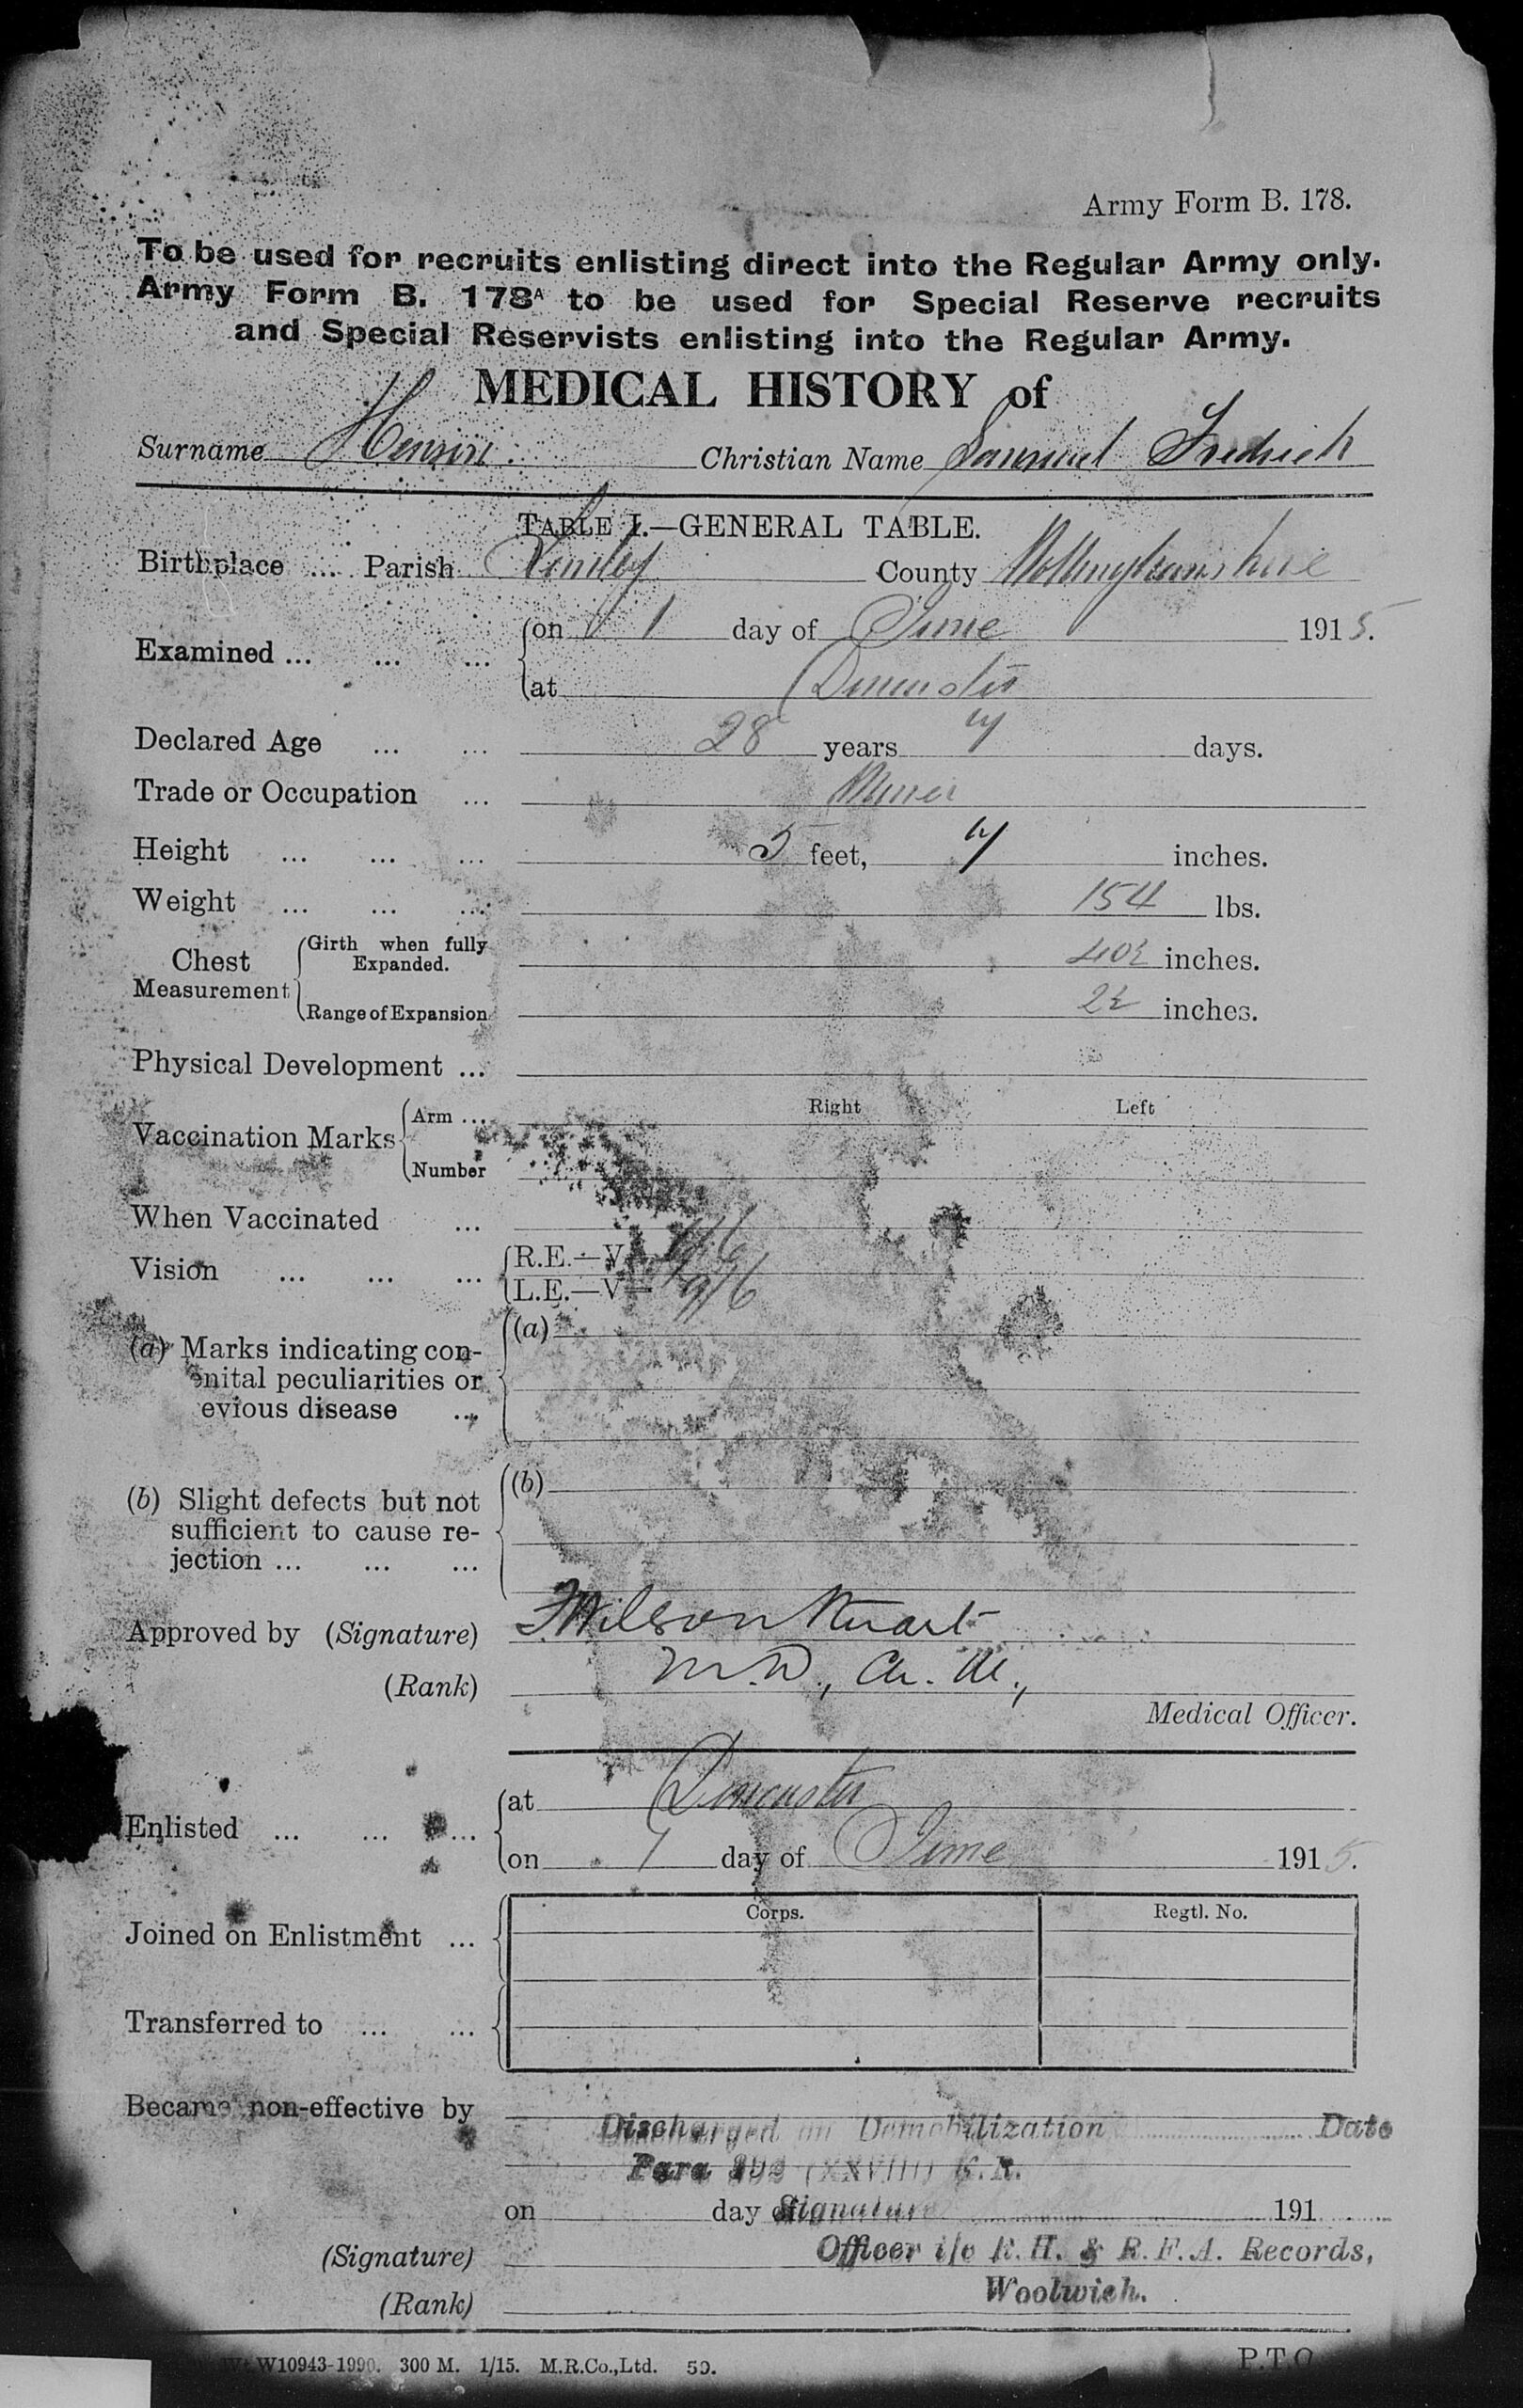 Army Form B. 178.
To be used for recruits enlisting direct into the Regular Army only.
Army Form B. 178A to be used for Special Reserve recruits
and Special Reservists enlisting into the Regular Army.
MEDICAL HISTORY of
Surname Henson. Christian Name Samuel Fredrick
TABLE I.—GENERAL TABLE.
Birthplace ... Parish County Nottinghamshire
Examined ... ... ... on 1 day of June 1915.
at Doncaster
Declared Age ... ... 28 years days.
Trade or Occupation ... Miner
Height ... ... ... 5 feet, inches.
Weight ... ... ... 154 lbs.
Chest Measurement Girth when fully Expanded. 40½ inches.
Range of Expansion 2½ inches.
Physical Development ...
Right Left
Vaccination Marks Arm ...
Number
When Vaccinated ...
Vision ... ... ... R.E.—V
L.E.—V—
(a) Marks indicating con-
enital peculiarities or
evious disease ...
(a)
(b) Slight defects but not
sufficient to cause re-
jection ... ... ...
(b)
Approved by (Signature) F Wilson Stuart
(Rank) M.D., Ch. M.,
Medical Officer.
Enlisted ... ... ... at Doncaster
on 1 day of June 1915.
Corps. Regtl. No.
Joined on Enlistment ...
Transferred to ... ...
Became non-effective by
Discharged on Demobilization Date
Para 392 (XXVIII) K.R.
on day of Signature 191
(Signature) Officer i/c R.H. & R.F.A. Records,
(Rank) Woolwich.
W10943-1990. 300 M. 1/15. M.R.Co.,Ltd. 50.
P.T.O